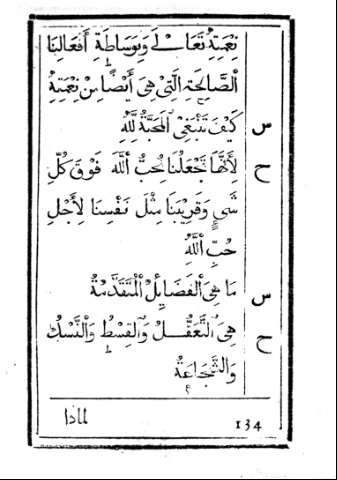 نِعْمَتِهِ تَعَالَى وَبِوَسَاطَةِ أَفْعَالِنَا
ٱلصَّالِحَةِ ٱلَّتِي هِيَ أَيْضًا مِنْ نِعْمَتِهِ
س كَيْفَ تَنْبَغِي ٱلْمَحَبَّةُ لِلّٰهِ
ح لِأَنَّهَا تَجْعَلُنَا نُحِبُّ ٱللّٰهَ فَوْقَ كُلِّ
شَيٍ وَقَرِيبَنَا مِثْلَ نَفْسِنَا لِأَجْلِ
حُبِّ ٱللّٰهِ
س مَا هِيَ ٱلْفَضَائِلُ ٱلْمُتَقَدِّمَةُ
ح هِيَ ٱلتَّعَقُّلُ وَٱلْقِسْطُ وَٱلنُّسْكُ
وَٱلشَّجَاعَةُ
لماذا
134